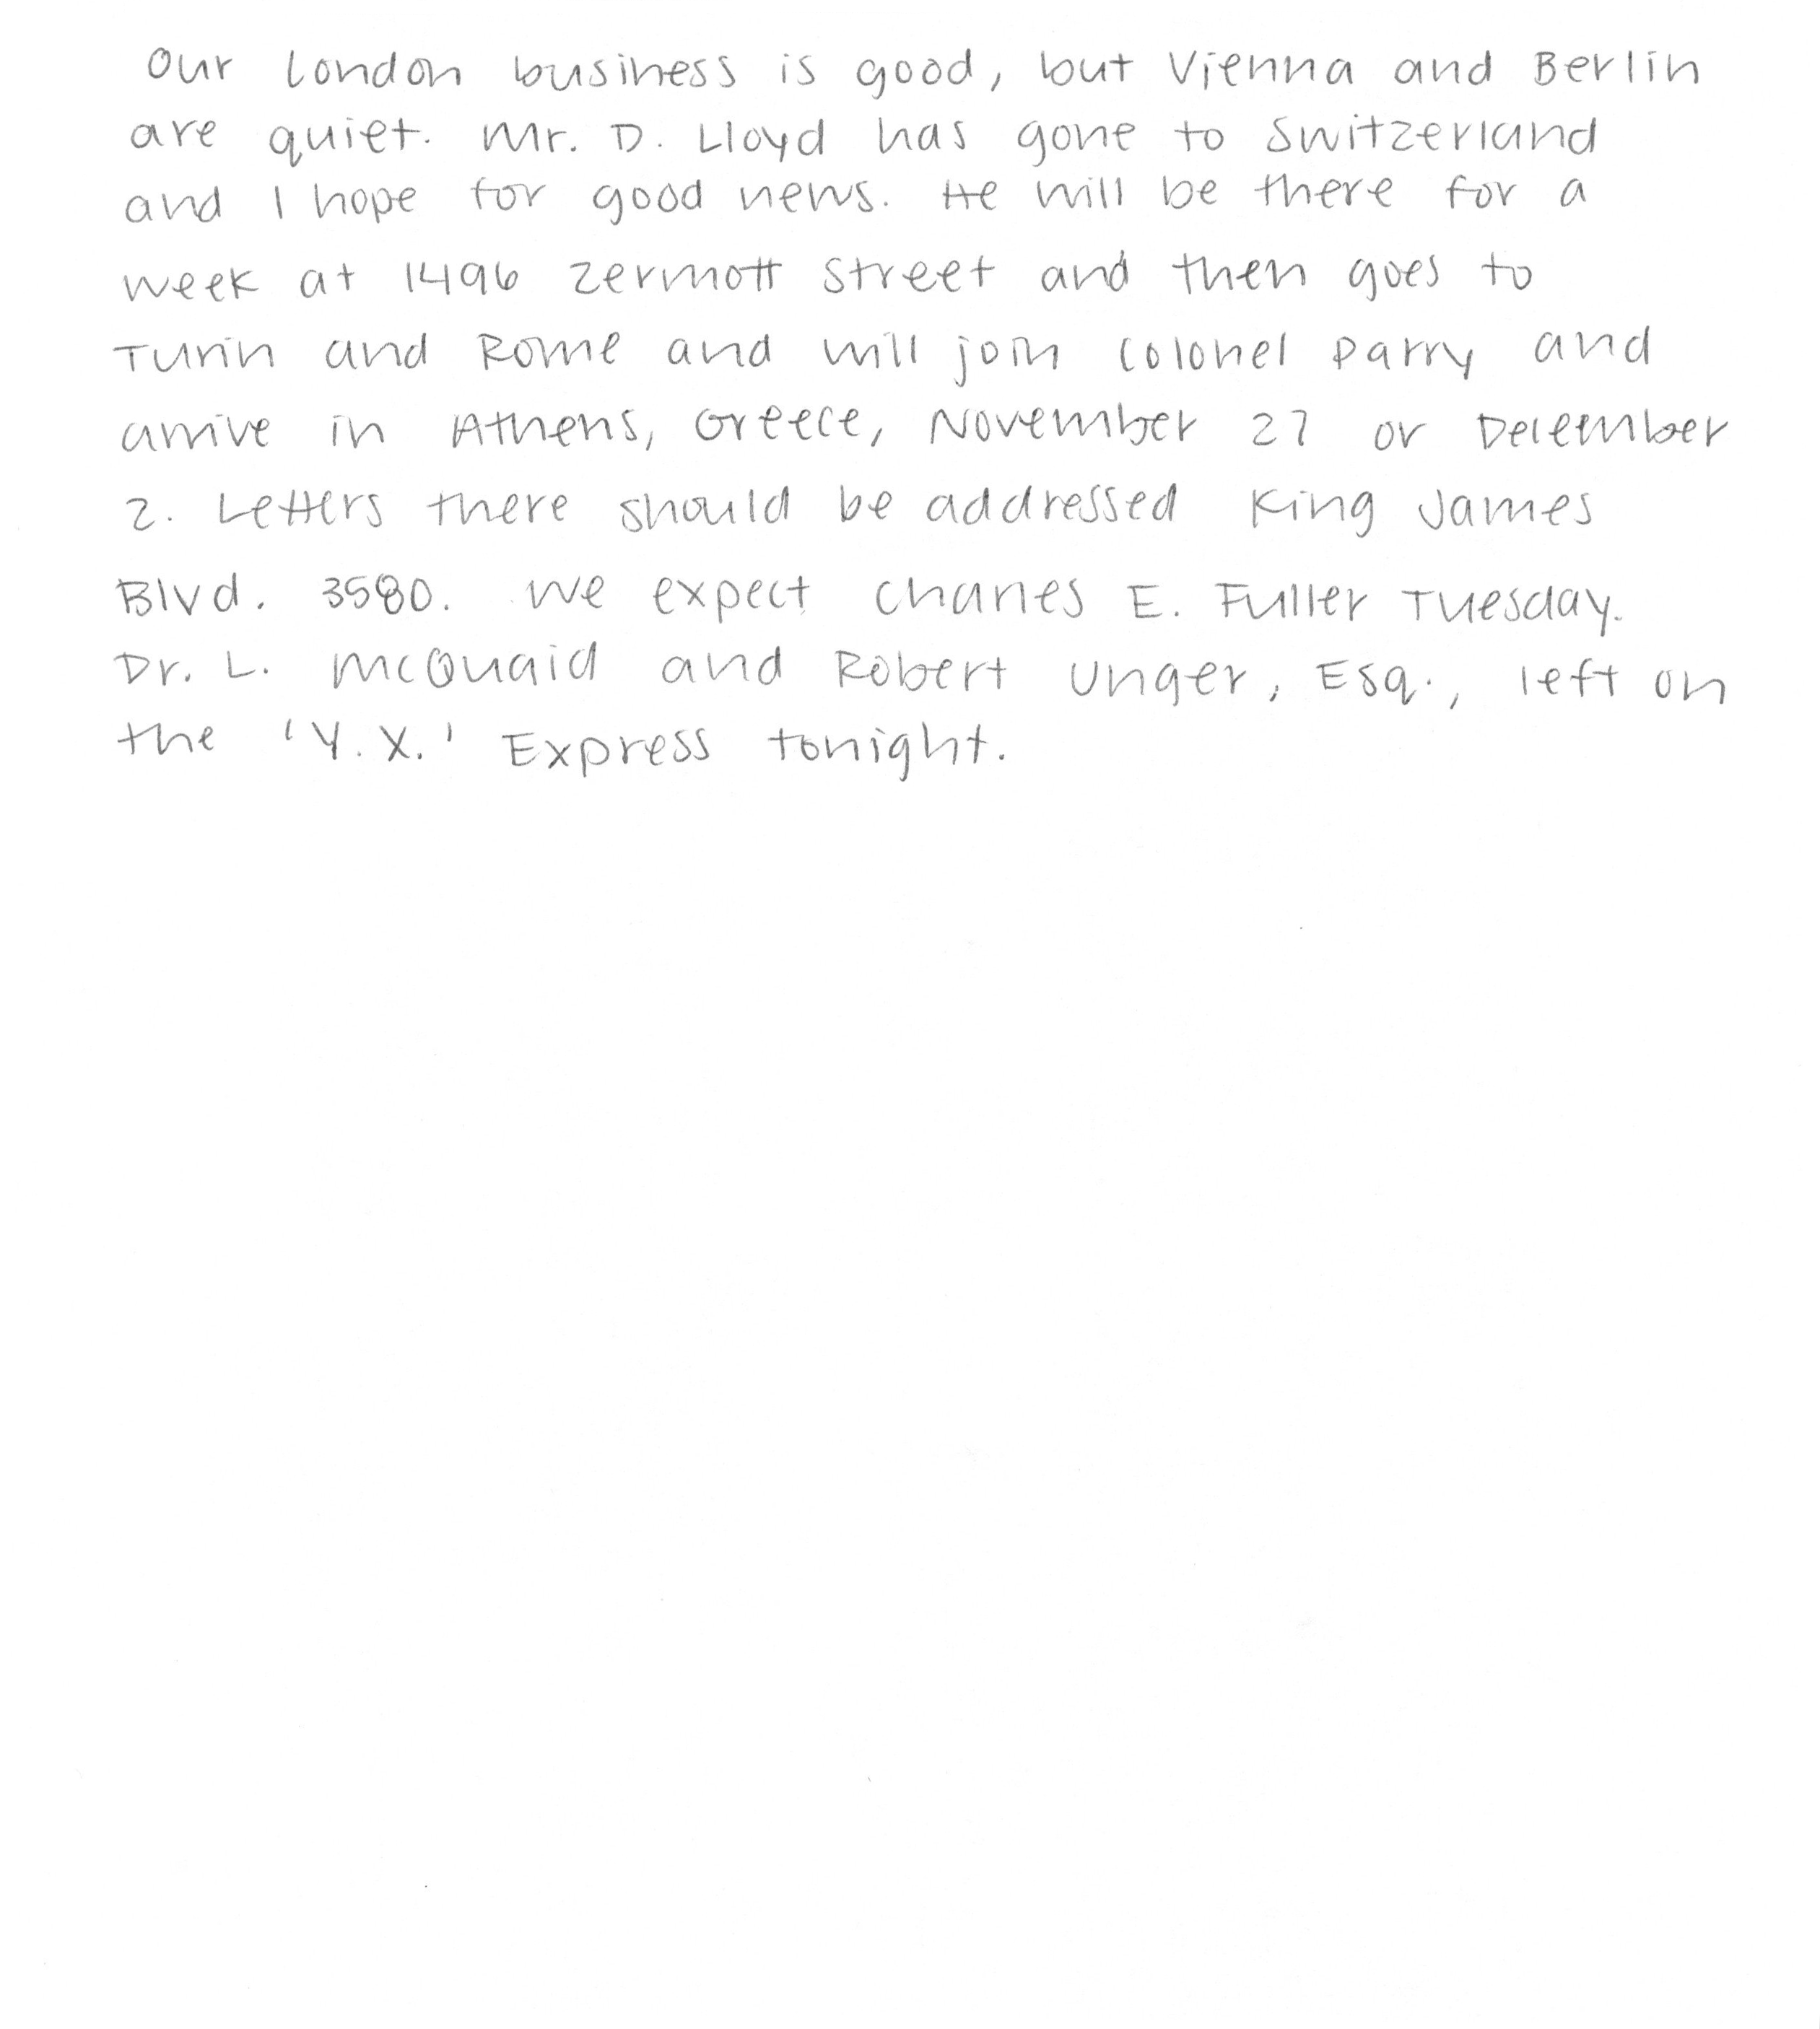 Our London business is good, but Vienna and Berlin
are quiet. Mr. D. Lloyd has gone to Switzerland
and I hope for good news. He will be there for a
week at 1496 Zermott Street and then goes to
Turin and Rome and will join Colonel Parry and
arrive in Athens, Greece, November 27 or December
2. Letters there should be addressed King James
Blvd. 3580. We expect Charles E. Fuller Tuesday.
Dr. L. McQuaid and Robert Unger, Esq., left on
the 'Y.X.' Express tonight.